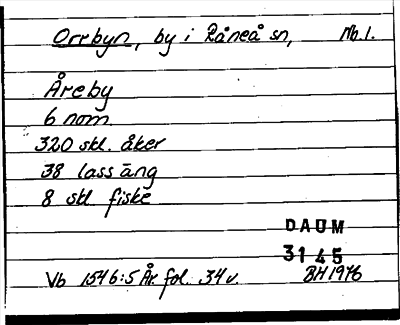 Orrbyn, by i Råneå sn, Nb.1.
Åreby
6 nom
320 skl. åker
38 lass äng
8 skl fiske
DAUM
3145
Vb 1546:5 År. fol. 34v. BH1976